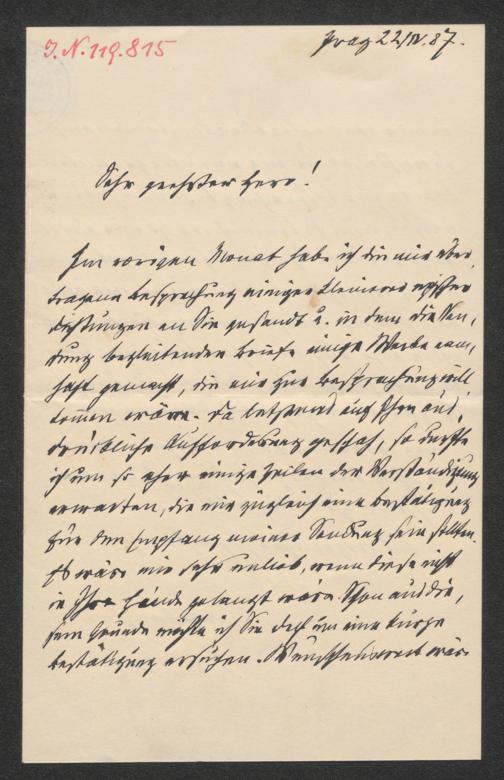 J. N. 119.815
Prag 22/IV. 87.
Sehr geehrter Herr!
Im vorigen Monat habe ich die mir über
tragene Besprechung einiger kleinerer epischer
Dichtungen an Sie gesandt u. in dem die Sen,
dung begleitenden Briefe einige Werke nam,
haft gemacht, die mir zur Besprechung will
kommen wären. Da letzteres auf Ihre aus,
drückliche Aufforderung geschah, so durfte
ich um so eher einige Zeilen der Verständigung
erwarten, die mir zugleich eine Bestätigung
für den Empfang meiner Sendung sein sollten.
Es wäre mir sehr unlieb, wenn diese nicht
in Ihre Hände gelangt wäre. Schon aus die,
sem Grunde möchte ich Sie doch um eine kurze
Bestätigung ersuchen. Wünschenswert wäre